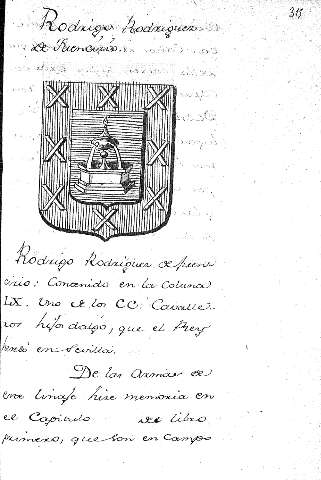 315
Rodrigo Rodriguez
de Fuencirio.
Rodrigo Rodriguez de fuen
cirio: Contenido en la Coluna
LIX. Uno de los CC. Cavalle
ros hijosdalgo, que el Rey
heredó en Sevilla.
De las Armas de
este linaje hize memoria en
el Capitulo de libro
primero, que son en Campo